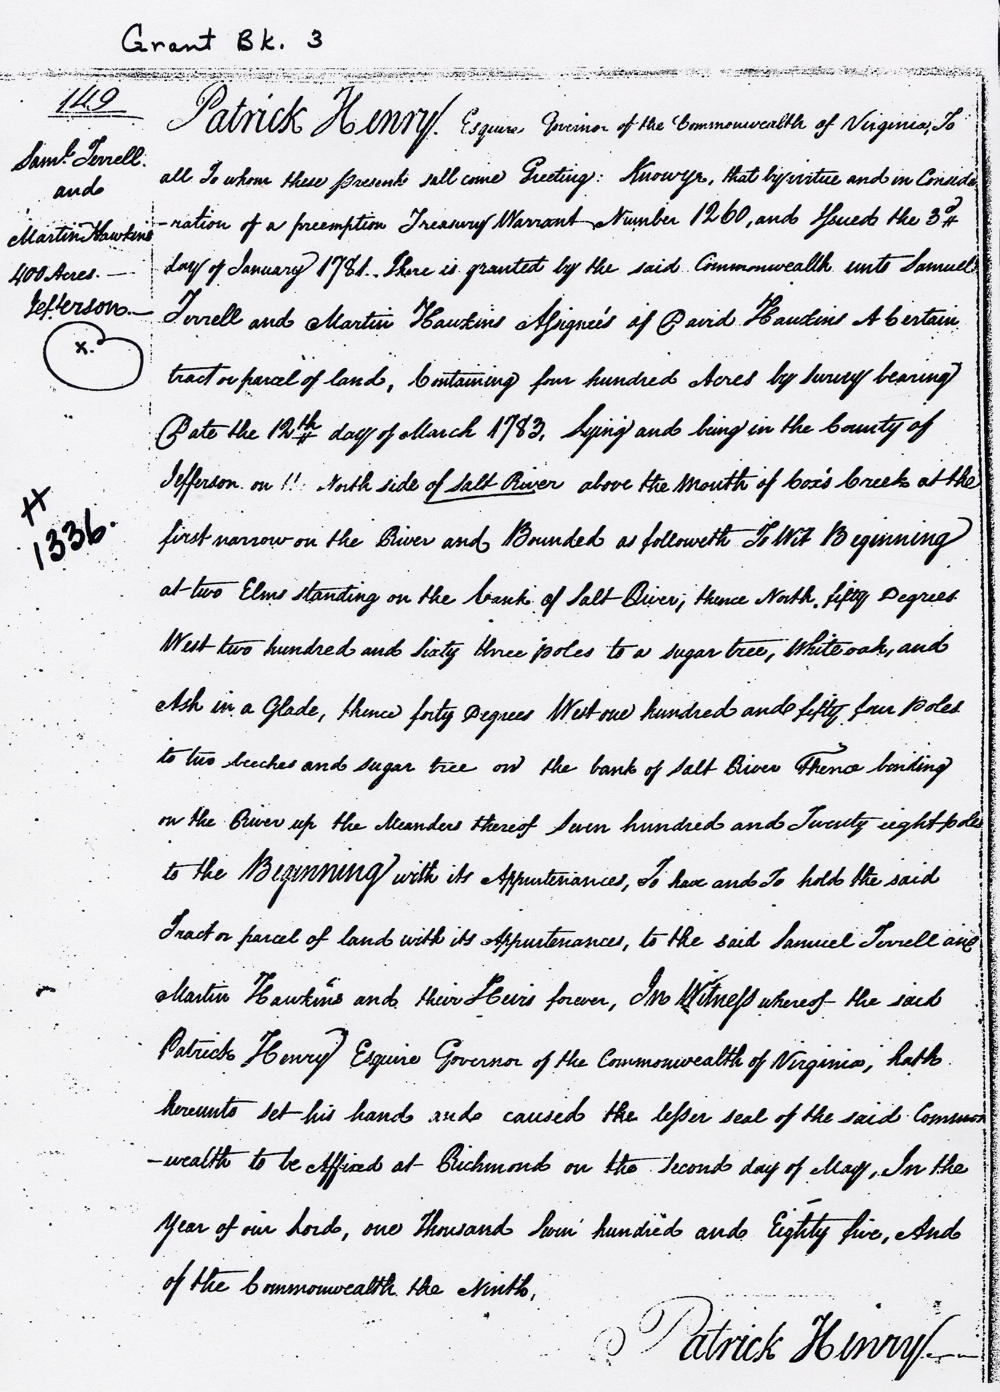 Grant Bk. 3
149
Saml. Terrell.
and
Martin Hawkins
400 Acres.
Jefferson.
x.
# 1336.
Patrick Henry. Esquire Governor of the Commonwealth of Virginia, To
all To whom these presents sall come Greeting: Know ye, that by virtue and in Conside
-ration of a preemption Treasury Warrant Number 1260, and Issued the 3d
day of January 1781. There is granted by the said Commonwealth unto Samuel
Terrell and Martin Hawkins Assigneés of David Hawkins A Certain
tract or parcel of land, Containing four hundred Acres by survey bearing
Date the 12th day of March 1783, Lying and being in the County of
Jefferson on North side of Salt River above the Mouth of Cox's Creek at the
first narrow on the River and Bounded as followeth To Wit Beginning
at two Elms standing on the bank of Salt River; thence North, fifty Degrees
West two hundred and Sixty three poles to a sugar tree, White oak, and
Ash in a Glade, thence forty Degrees West one hundred and fifty four Poles
to two beeches and sugar tree on the bank of Salt River Thence binding
on the River up the Meanders thereof Seven hundred and Twenty eight poles
to the Beginning with its Appurtenances, To have and To hold the said
Tract or parcel of land with its Appurtenances, to the said Samuel Terrell and
Martin Hawkins and their Heirs forever, In Witness whereof the said
Patrick Henry Esquire Governor of the Commonwealth of Virginia, hath
hereunto set his hand and caused the lesser seal of the said Common
-wealth to be Affixed at Richmond on the Second day of May, In the
Year of our Lord, one Thousand Seven hundred and Eighty five, And
of the Commonwealth the Ninth,
Patrick Henry